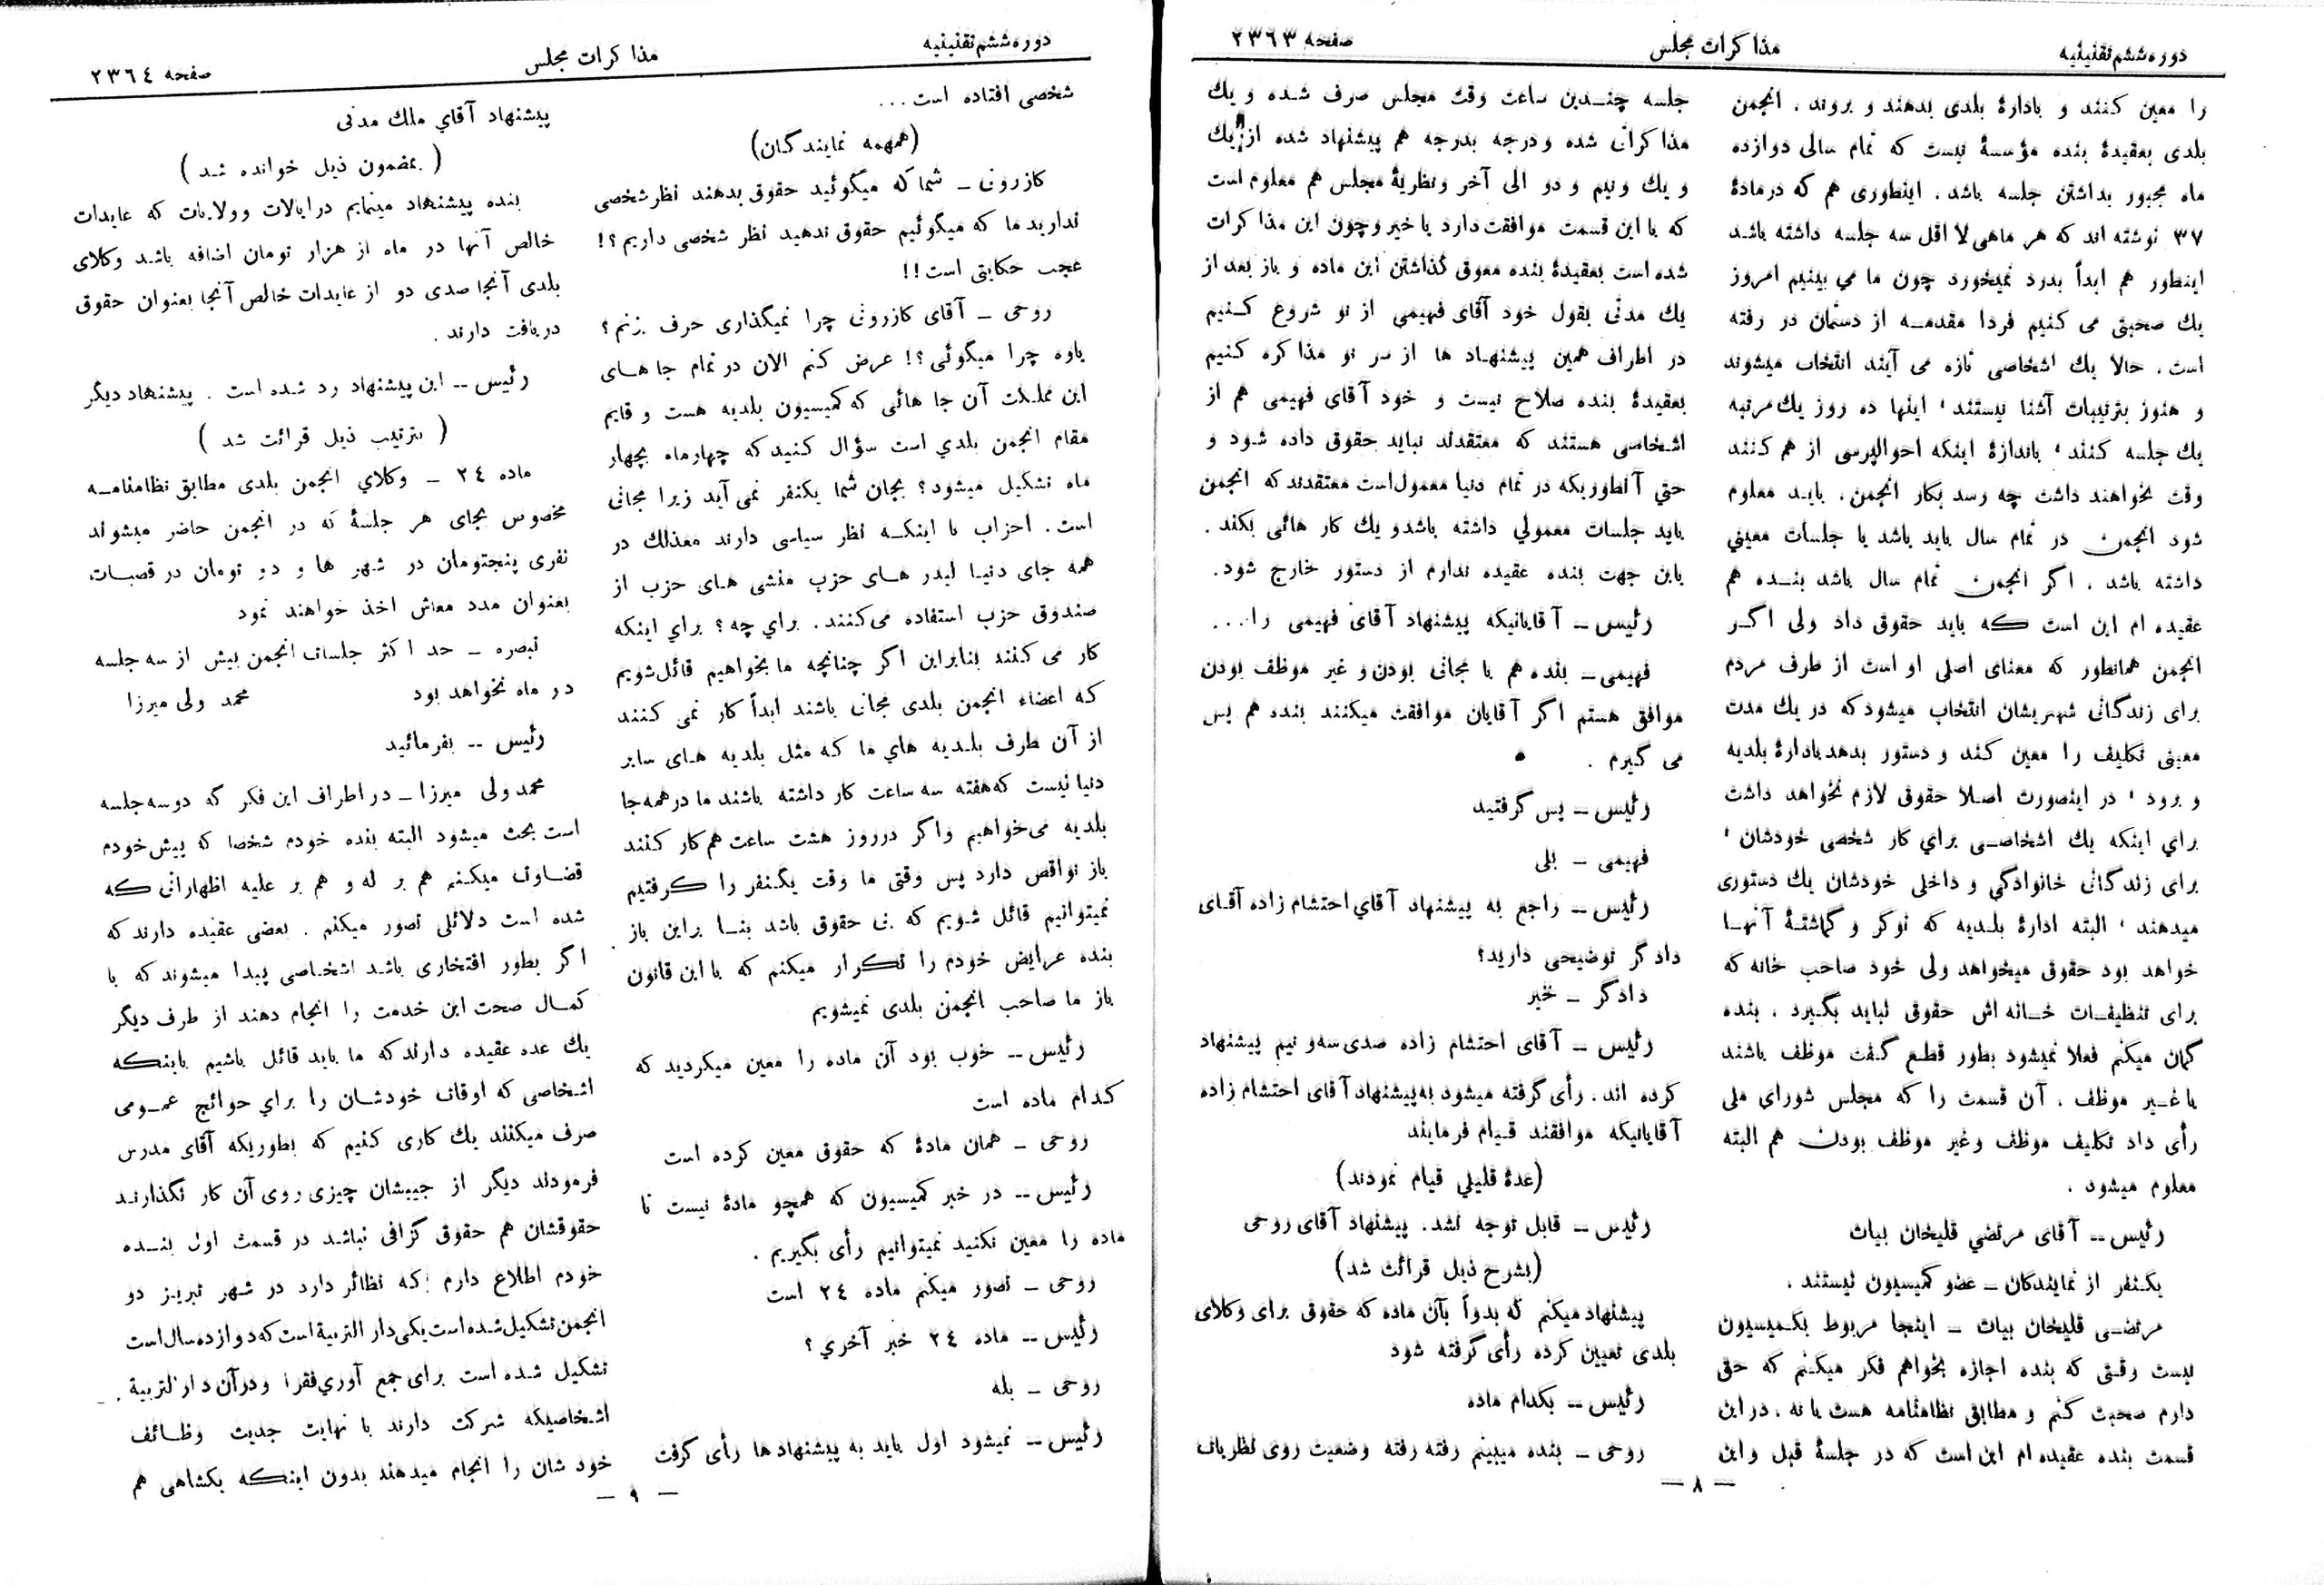 دوره ششم تقنینیه
مذاکرات مجلس
صفحه ۲۳۶۳
را معین کنند و بادارهٔ بلدی بدهند و بروند . انجمن
بلدی بعقیدهٔ بنده مؤسسهٔ نیست که تمام سالی دوازده
ماه مجبور بداشتن جلسه باشد . اینطوری هم که در مادهٔ
۳۷ نوشته اند که هر ماهی لااقل سه جلسه داشته باشد
اینطور هم ابداً بدرد نمیخورد چون ما می بینیم امروز
یك صحبتی می کنیم فردا مقدمه از دستمان در رفته
است . حالا یك اشخاصی تازه می آیند انتخاب میشوند
و هنوز بترتیبات آشنا نیستند ، اینها ده روز یك مرتبه
یك جلسه کنند ، باندازهٔ اینکه احوالپرسی از هم کنند
وقت نخواهند داشت چه رسد بکار انجمن . باید معلوم
شود انجمن در تمام سال باید باشد یا جلسات معینی
داشته باشد . اگر انجمن تمام سال باشد بنده هم
عقیده ام این است که باید حقوق داد ولی اگر
انجمن همانطور که معنای اصلی او است از طرف مردم
برای زندگانی شهریشان انتخاب میشود که در یك مدت
معینی تکلیف را معین کند و دستور بدهد بادارهٔ بلدیه
و برود ، در اینصورت اصلا حقوق لازم نخواهد داشت
برای اینکه یك اشخاصی برای کار شخصی خودشان ،
برای زندگانی خانوادگی و داخلی خودشان یك دستوری
میدهند ، البته ادارهٔ بلدیه که نوکر و گماشتهٔ آنها
خواهد بود حقوق میخواهد ولی خود صاحب خانه که
برای تنظیفات خانه اش حقوق نباید بگیرد . بنده
گمان میکنم فعلا نمیشود بطور قطع گفت موظف باشند
یا غیر موظف . آن قسمت را که مجلس شورای ملی
رأی داد تکلیف موظف و غیر موظف بودن هم البته
معلوم میشود .
رئیس -- آقای مرتضی قلیخان بیات
یکنفر از نمایندگان ـ عضو کمیسیون نیستند .
مرتضی قلیخان بیات ـ اینجا مربوط بکمیسیون
نیست وقتی که بنده اجازه بخواهم فکر میکنم که حق
دارم صحبت کنم و مطابق نظامنامه هست یا نه . در این
قسمت بنده عقیده ام این است که در جلسهٔ قبل و این
جلسه چندین ساعت وقت مجلس صرف شده و یك
مذاکراتی شده و درجه بدرجه هم پیشنهاد شده از یك
و یك و نیم و دو الی آخر و نظریهٔ مجلس هم معلوم است
که با این قسمت موافقت دارد یا خیر و چون این مذاکرات
شده است بعقیدهٔ بنده معوق گذاشتن این ماده و باز بعد از
یك مدتی بقول خود آقای فهیمی از نو شروع کنیم
در اطراف همین پیشنهاد ها از سر نو مذاکره کنیم
بعقیدهٔ بنده صلاح نیست و خود آقای فهیمی هم از
اشخاصی هستند که معتقدند نباید حقوق داده شود و
حتی آنطوریکه در تمام دنیا معمول است معتقدند که انجمن
باید جلسات معمولی داشته باشد و یك کار هائی بکند .
باین جهت بنده عقیده ندارم از دستور خارج شود .
رئیس -- آقایانیکه پیشنهاد آقای فهیمی را...
فهیمی ـ بنده هم با مجانی بودن و غیر موظف بودن
موافق هستم اگر آقایان موافقت میکنند بنده هم پس
می گیرم .
رئیس -- پس گرفتید
فهیمی ـ بلی
رئیس -- راجع به پیشنهاد آقای احتشام زاده آقای
دادگر توضیحی دارید؟
دادگر ـ خیر
رئیس -- آقای احتشام زاده صدی سه و نیم پیشنهاد
کرده اند . رأی گرفته میشود به پیشنهاد آقای احتشام زاده
آقایانیکه موافقند قیام فرمایند
(عدهٔ قلیلی قیام نمودند)
رئیس -- قابل توجه نشد . پیشنهاد آقای روحی
(بشرح ذیل قرائت شد)
پیشنهاد میکنم که بدواً بآن ماده که حقوق برای وکلای
بلدی تعیین کرده رأی گرفته شود
رئیس -- بکدام ماده
روحی ـ بنده میبینم رفته رفته وضعیت روی نظریات
— ۸ —
دوره ششم تقنینیه
مذاکرات مجلس
صفحه ۲۳۶٤
شخصی افتاده است ...
(همهمه نمایندگان)
کازرونی ـ شما که میگوئید حقوق بدهند نظر شخصی
ندارید ما که میگوئیم حقوق ندهید نظر شخصی داریم؟!
عجب حکایتی است!!
روحی ـ آقای کازرونی چرا نمیگذاری حرف بزنم؟
یاوه چرا میگوئی؟! عرض کنم الان در تمام جاهای
این مملکت آن جا هائی که کمیسیون بلدیه هست و قایم
مقام انجمن بلدی است سؤال کنید که چهارماه بچهار
ماه تشکیل میشود؟ بجان شما یکنفر نمی آید زیرا مجانی
است . احزاب با اینکه نظر سیاسی دارند معذلك در
همه جای دنیا لیدر های حزب منشی های حزب از
صندوق حزب استفاده می‌کنند . برای چه؟ برای اینکه
کار می کنند بنابراین اگر چنانچه ما بخواهیم قائل شویم
که اعضاء انجمن بلدی مجانی باشند ابداً کار نمی کنند
از آن طرف بلدیه های ما که مثل بلدیه های سایر
دنیا نیست که هفته سه ساعت کار داشته باشند ما در همه جا
بلدیه می‌خواهیم و اگر در روز هشت ساعت هم کار کنند
باز نواقص دارد پس وقتی ما وقت یکنفر را گرفتیم
نمیتوانیم قائل شویم که بی حقوق باشد بنا براین باز
بنده عرایض خودم را تکرار میکنم که با این قانون
باز ما صاحب انجمن بلدی نمیشویم
رئیس -- خوب بود آن ماده را معین میکردید که
کدام ماده است
روحی ـ همان مادهٔ که حقوق معین کرده است
رئیس -- در خبر کمیسیون که همچو مادهٔ نیست تا
ماده را معین نکنید نمیتوانیم رأی بگیریم .
روحی ـ تصور میکنم ماده ۲٤ است
رئیس -- ماده ۲٤ خبر آخری؟
روحی ـ بله
رئیس -- نمیشود اول باید به پیشنهاد ها رأی گرفت
پیشنهاد آقای ملك مدنی
( بمضمون ذیل خوانده شد )
بنده پیشنهاد مینمایم در ایالات و ولایات که عایدات
خالص آنها در ماه از هزار تومان اضافه باشد وکلای
بلدی آنجا صدی دو از عایدات خالص آنجا بعنوان حقوق
دریافت دارند .
رئیس -- این پیشنهاد رد شده است . پیشنهاد دیگر
( بترتیب ذیل قرائت شد )
ماده ۲٤ ـ وکلای انجمن بلدی مطابق نظامنامه
مخصوص بجای هر جلسهٔ که در انجمن حاضر میشوند
نفری پنجتومان در شهر ها و دو تومان در قصبات
بعنوان مدد معاش اخذ خواهند نمود
تبصره ـ حد اکثر جلسات انجمن بیش از سه جلسه
در ماه نخواهد بود محمد ولی میرزا
رئیس -- بفرمائید
محمد ولی میرزا ـ در اطراف این فکر که دو سه جلسه
است بحث میشود البته بنده خودم شخصا که پیش خودم
قضاوت میکنم هم بر له و هم بر علیه اظهاراتی که
شده است دلائلی تصور میکنم . بعضی عقیده دارند که
اگر بطور افتخاری باشد اشخاصی پیدا میشوند که با
کمال صحت این خدمت را انجام دهند از طرف دیگر
یك عده عقیده دارند که ما باید قائل باشیم باینکه
اشخاصی که اوقات خودشان را برای حوائج عمومی
صرف میکنند یك کاری کنیم که بطوریکه آقای مدرس
فرمودند دیگر از جیبشان چیزی روی آن کار نگذارند
حقوقشان هم حقوق گزافی نباشد در قسمت اول بنده
خودم اطلاع دارم که نظائر دارد در شهر تبریز دو
انجمن تشکیل شده است یکی دار التربیة است که دوازده سال است
تشکیل شده است برای جمع آوری فقرا و در آن دارالتربیة
اشخاصیکه شرکت دارند با نهایت جدیت وظائف
خود شان را انجام میدهند بدون اینکه یکشاهی هم
— ۹ —